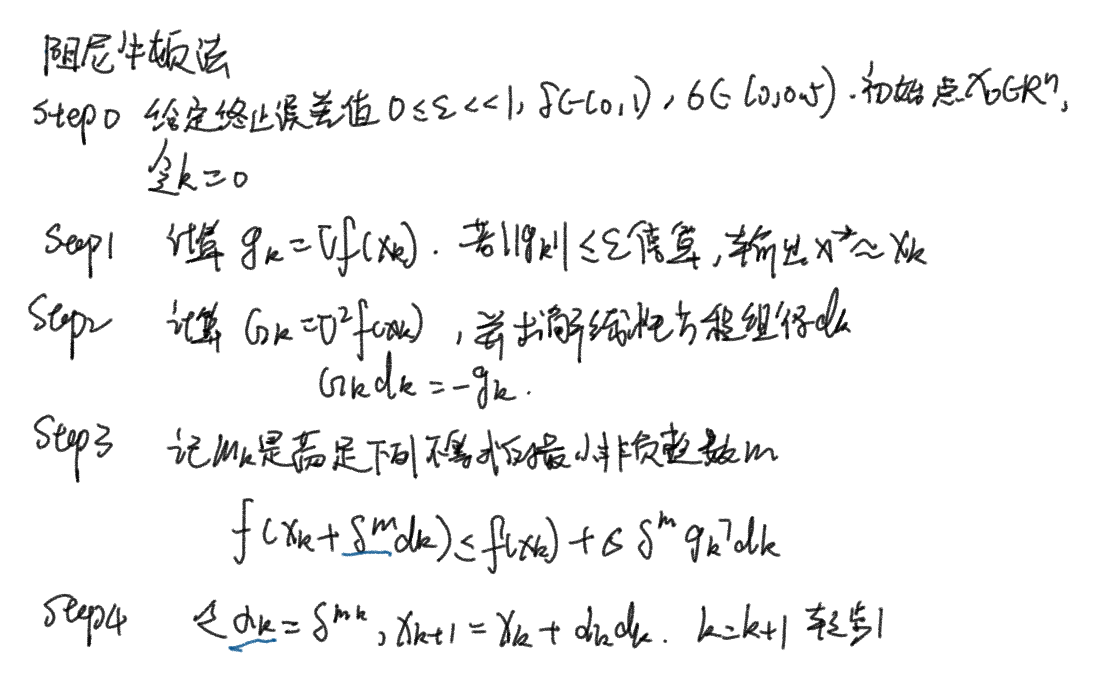 阻尼牛顿法
Step0 给定终止误差值 0≤ε<<1, δ∈(0,1), σ∈(0,0.5). 初始点 x₀∈Rⁿ,
令k=0
Step1 计算 gₖ=∇f(xₖ). 若||gₖ||≤ε停算,输出x*≈xₖ
Step2 计算 Gₖ=∇²f(xₖ), 并求解线性方程组得dₖ
Gₖdₖ=-gₖ.
Step3 记mₖ是满足下列不等式的最小非负整数m
f(xₖ+δᵐdₖ)≤f(xₖ)+σδᵐgₖᵀdₖ
Step4 令αₖ=δᵐᵏ, xₖ₊₁=xₖ+αₖdₖ. k=k+1 转步1